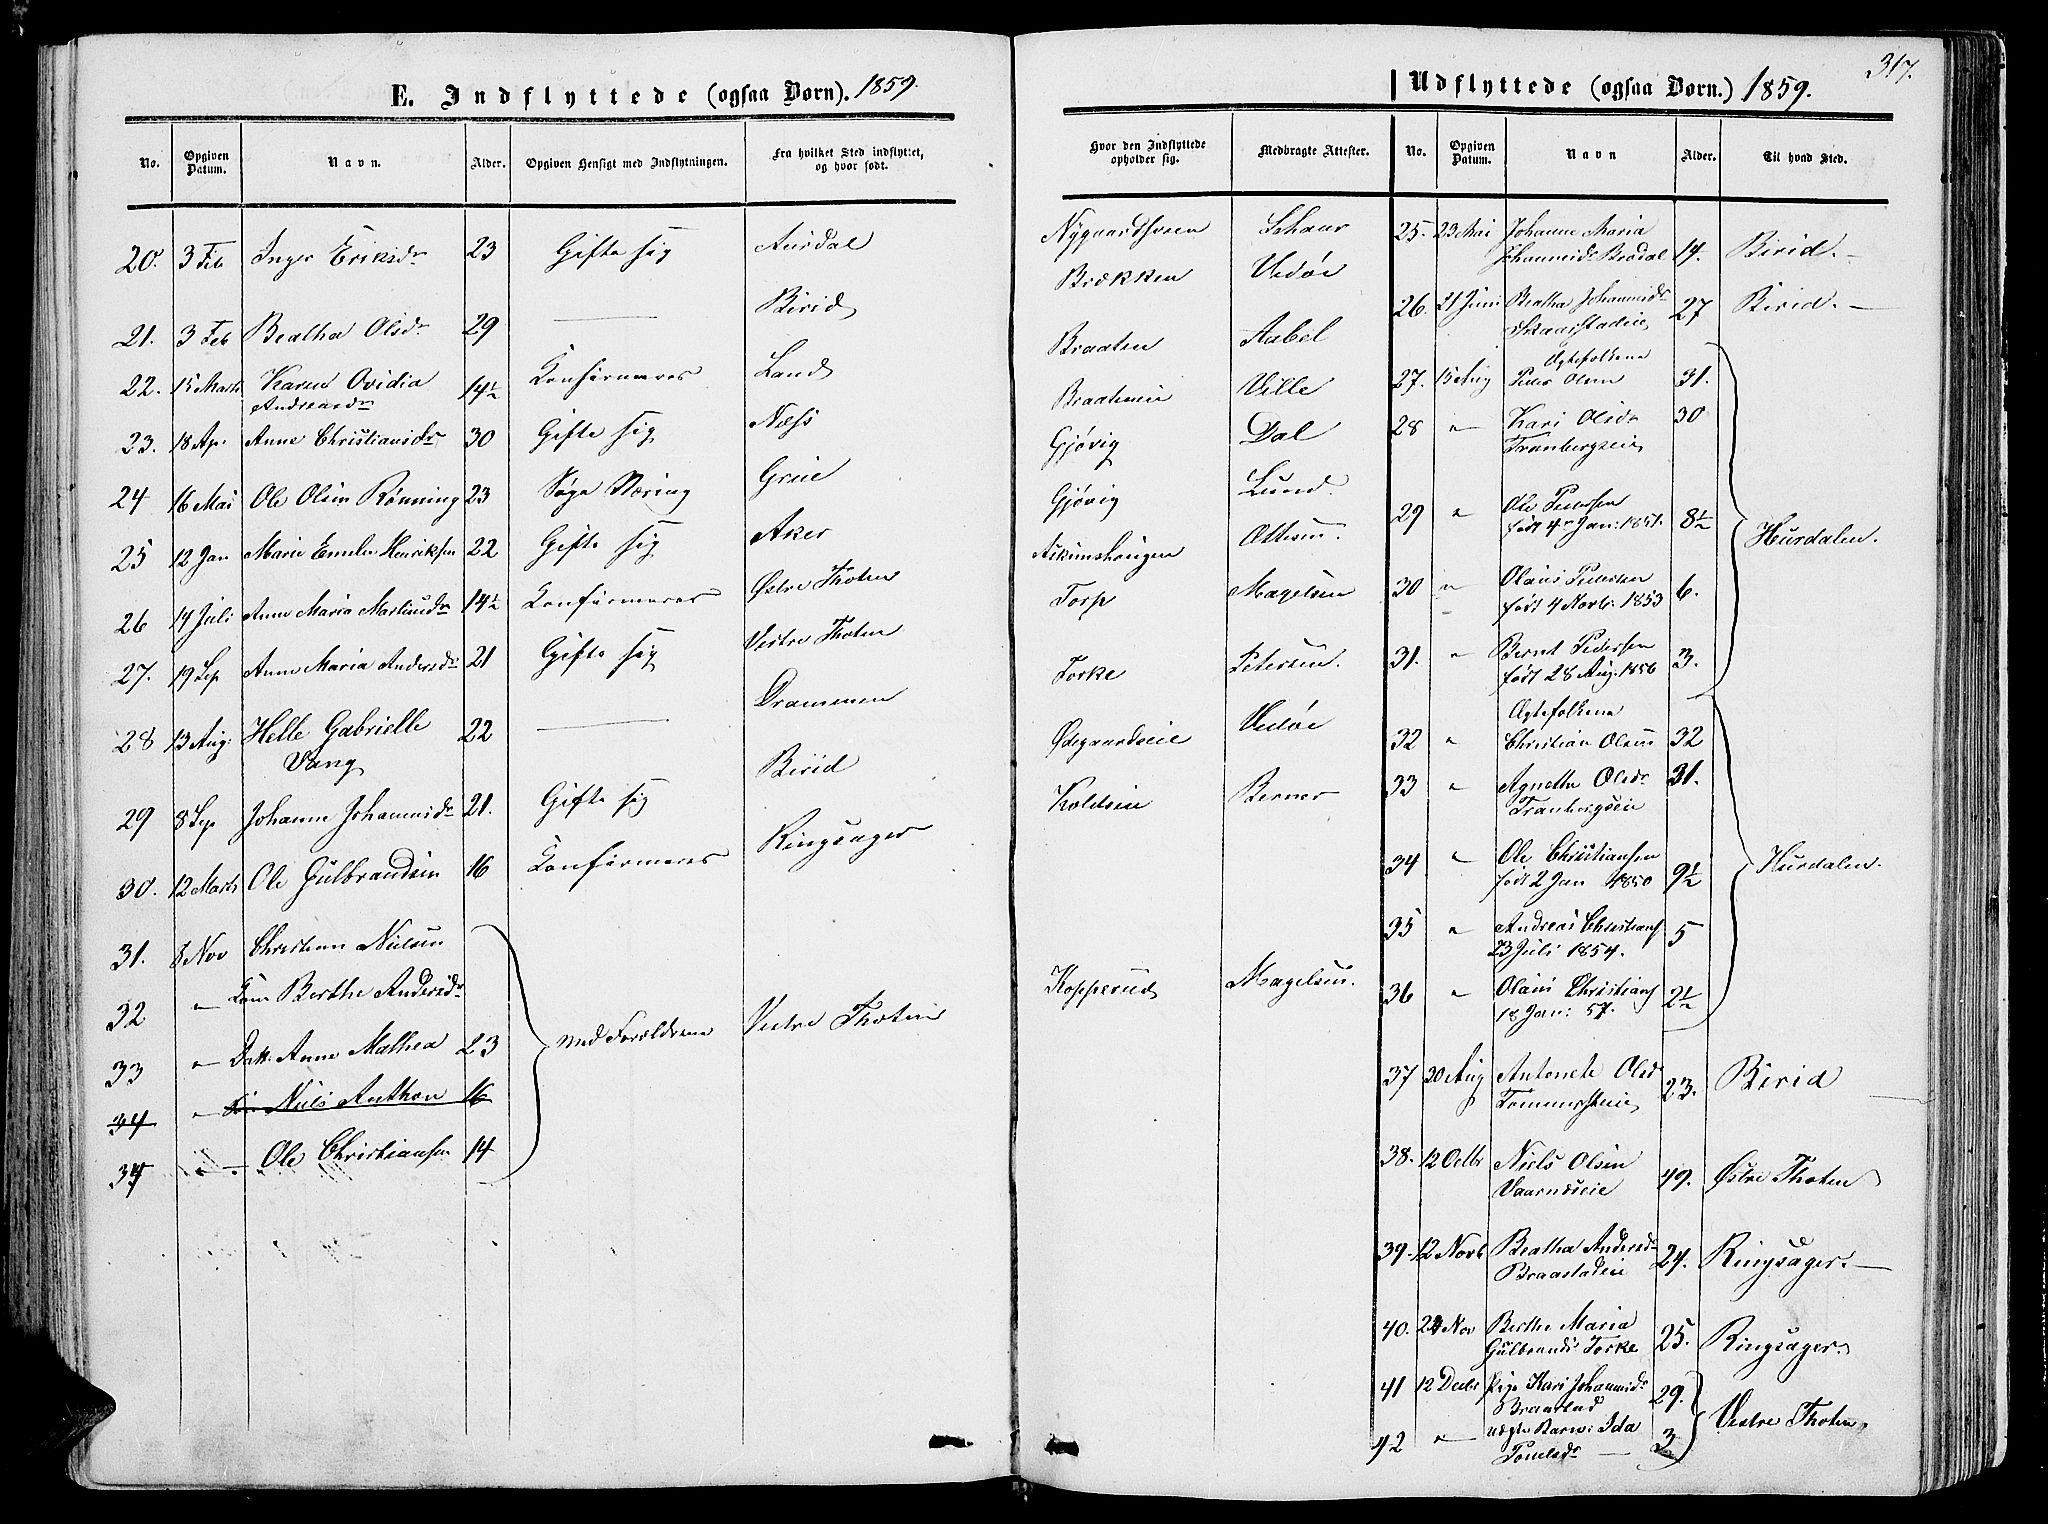 E. Indflyttede (ogsaa Børn). 1859.
No. Opgiven Datum. Navn. Alder. Opgiven Hensigt med Indflytningen. Fra hvilket Sted indflyttet, og hvor født.
20. 3 Feb Inger Eriksdr 23 Gifte sig Aurdal
21. 3 Feb Beatha Olsdr 29 — Birid
22. 15 Marts Karen Ovidia 14½ Konfirmeres Land
Andreasdr
23. 18 Ap. Anne Christiansdr 30 Gifte sig Næss
24 16 Mai Ole Olsen Rønning 23 Søge Næring Grue
25 12 Jan Marie Emelie Henriksen 22 Gifte sig Aker
26 14 Juli Anne Maria Marliusdr 14½ Konfirmeres Østre Thoten
27. 19 Sep Anne Maria Andersdr 21 Gifte sig Vestre Thoten
28 13 Aug: Helle Gabrielle 22 — Drammen
Vang
29 8 Sep Johanne Johannesdr 21. Gifte sig Birid
30. 12 Marts Ole Gulbrandsen 16 Konfirmeres Ringsager
31. 8 Nov Christian Nielsen
32 " Kone Berthe Andersdr
33 " Datt: Anne Mathea 23 med Forældrene Vestre Thoten
34 " Niels Anthon 16
34 " — Ole Christiansen 14
317.
Udflyttede (ogsaa Børn.) 1859.
Hvor den Indflyttede opholder sig. Medbragte Attester. No. Opgiven Datum. Navn Alder. Til hvad Sted.
Nygaardsveen Schaur
Brækken Vedøe
Braaten Aabel
Braateneie Ville
Gjøvig Dal
Gjøvig Lund.
Askimshaugen Ottesen.
Torp Magelsen
Torke Petersen.
Ødegaardseie Vedøe
Koldseie Berner
Kopperud Magelsen.
25. 23 Mai Johanne Maria
Johannesdr Brodal 14. Birid. —
26. 21 Juni Beatha Johannesdr 27 Birid. —
Skaarstadeie
Ægtefolkene
27. 15 Aug Peder Olsen 31.
28 " Kari Olsdr 30
Tranbergseie
29 " Ole Pedersen
født 4de Jan: 1851. 8½ Hurdalen.
30 " Olaus Pedersen
født 4 Novb: 1853 6.
31. " Bernt Pedersen
født 28 Aug: 1856 3.
Ægtefolkene
32 " Christian Olsen 32
33 " Agnethe Olsdr 31.
Tranbergseie
34 " Ole Christiansen
født 2 Jan 1850 9½ Hurdalen.
35 " Andreas Christians
23 Juli 1854. 5
36 " Olaus Christians
18 Jan: 57. 2½
37 30 Aug Antonete Olsdr 23. Birid
Tommerseie
38. 12 Octbr Niels Olsen
Vaarnæseie 49. Østre Thoten
39. 12 Novb Beatha Andersdr 24. Ringsager. —
Braastadeie
40. 24 Nov Berthe Maria
Gulbrands Torke 25. Ringsager.
41 12 Decbr Pige Kari Johannesdr 29.
Braastad Vestre Thoten
42 " uægte Barn: Ida
Poulsdr — 3